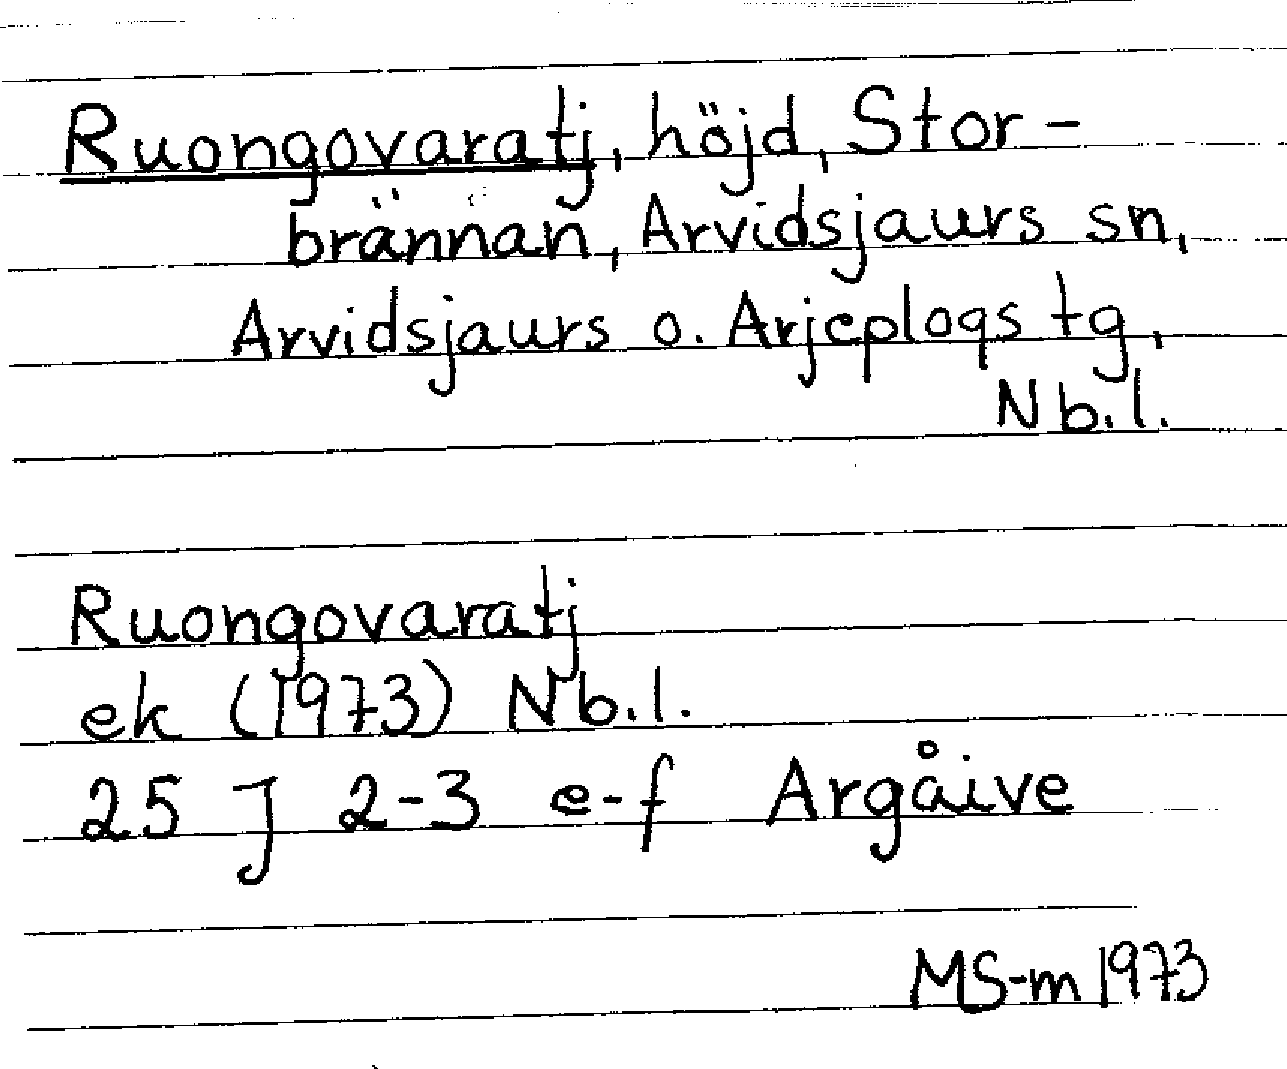 Ruongovaratj, höjd, Stor-
brännan, Arvidsjaurs sn,
Arvidsjaurs o. Arjeplogs tg,
Nb.l.
Ruongovaratj
ek (1973) Nb.l.
25 J 2-3 e-f Argåive
MS-m 1973